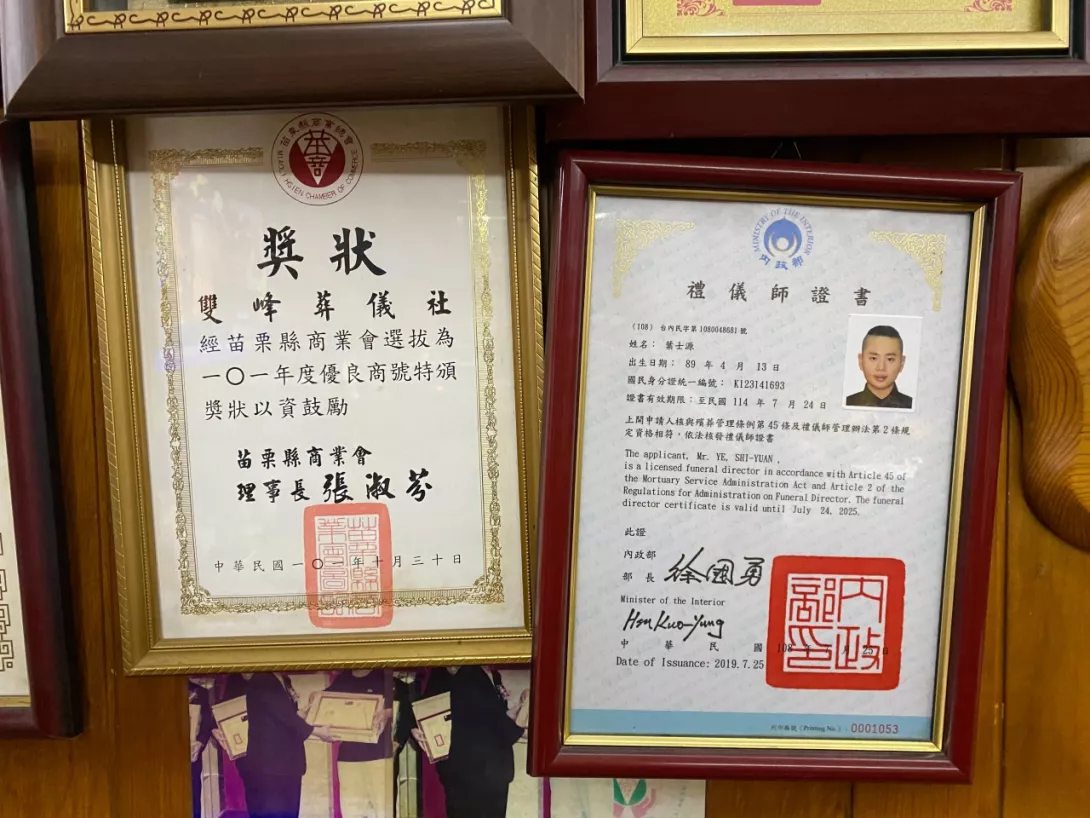 苗栗縣商業總會
MIAOLI HSIEN CHAMBER OF COMMERCE
獎狀
雙峰葬儀社
經苗栗縣商業會選拔為
一〇一年度優良商號特頒
獎狀以資鼓勵
苗栗縣商業會
理事長張淑芬
中華民國一〇一年十月三十日
MINISTRY OF THE INTERIOR
內政部
禮儀師證書
(108) 台內民字第1080048681號
姓名：葉士源
出生日期： 89 年 4 月 13 日
國民身分證統一編號： K123141693
證書有效期限：至民國 114 年 7 月 24 日
上開申請人核與殯葬管理條例第45條及禮儀師管理辦法第2條規
定資格相符，依法核發禮儀師證書
The applicant, Mr. YE, SHI-YUAN ,
is a licensed funeral director in accordance with Article 45 of
the Mortuary Service Administration Act and Article 2 of the
Regulations for Administration on Funeral Director. The funeral
director certificate is valid until July 24, 2025.
此證
內政部
部長 徐國勇
Minister of the Interior
Hsu Kuo-Yung
中華民國 108 年 7 月 25 日
Date of Issuance: 2019.7.25
內政部印
列印編號（Printing No.）：0001053